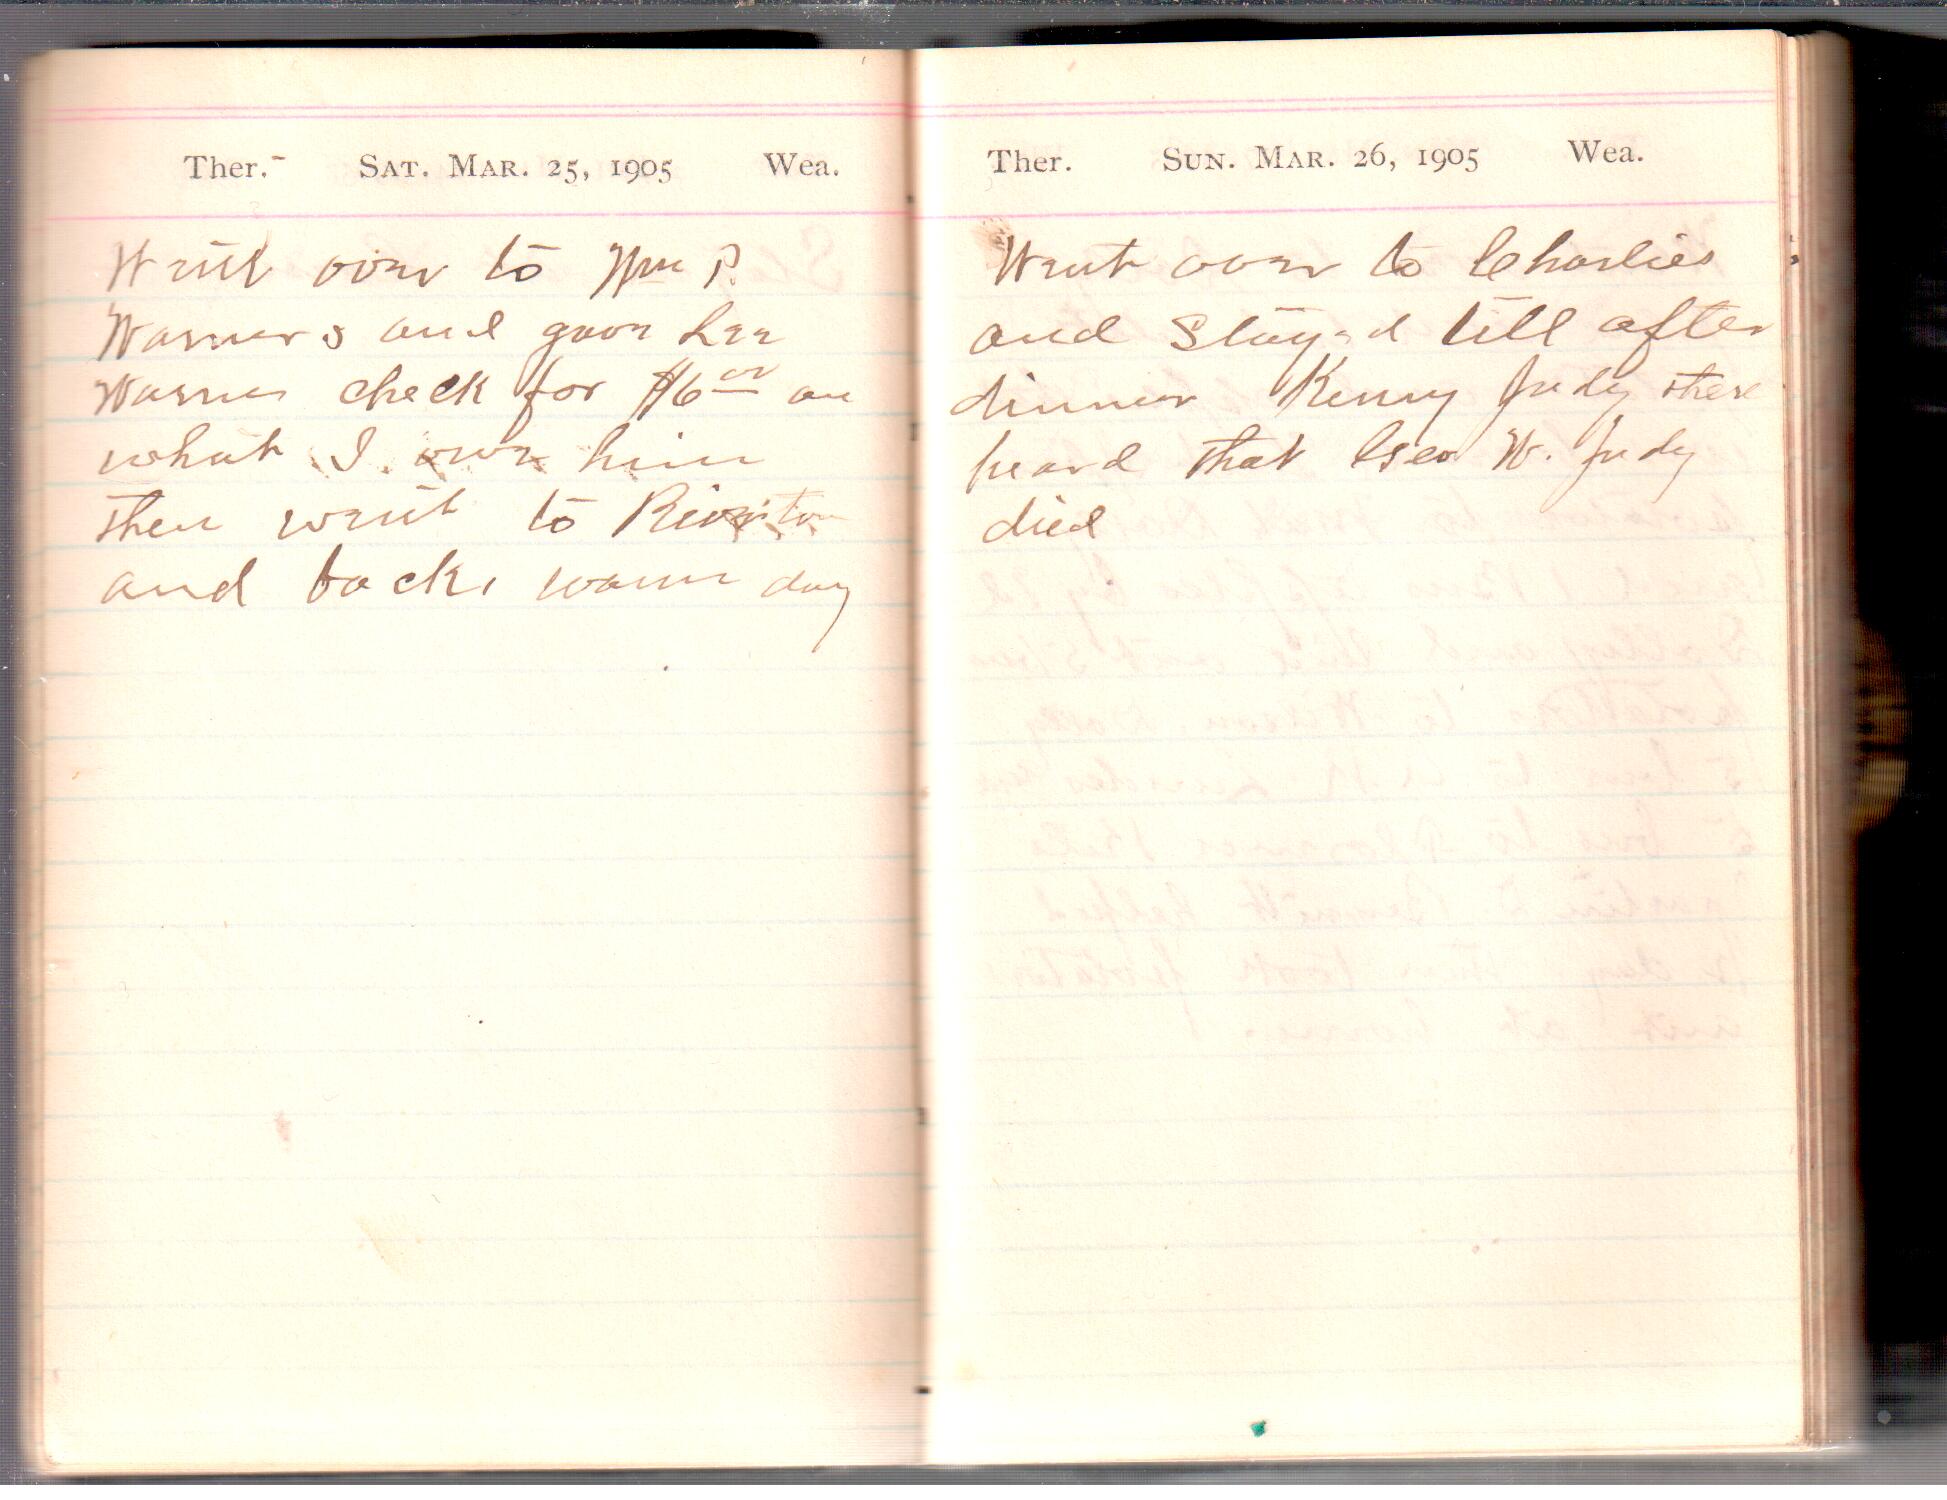 Ther. SAT. MAR. 25, 1905 Wea.
Went over to Wm P.
Warners and gave Lee
Warner check for $6 00 on
what I owe him
then went to Riverton
and back, warm day
Ther. SUN. MAR. 26, 1905 Wea.
Went over to Charlies
and stayed till after
dinner Kenny Judy there
heard that Geo W. Judy
died